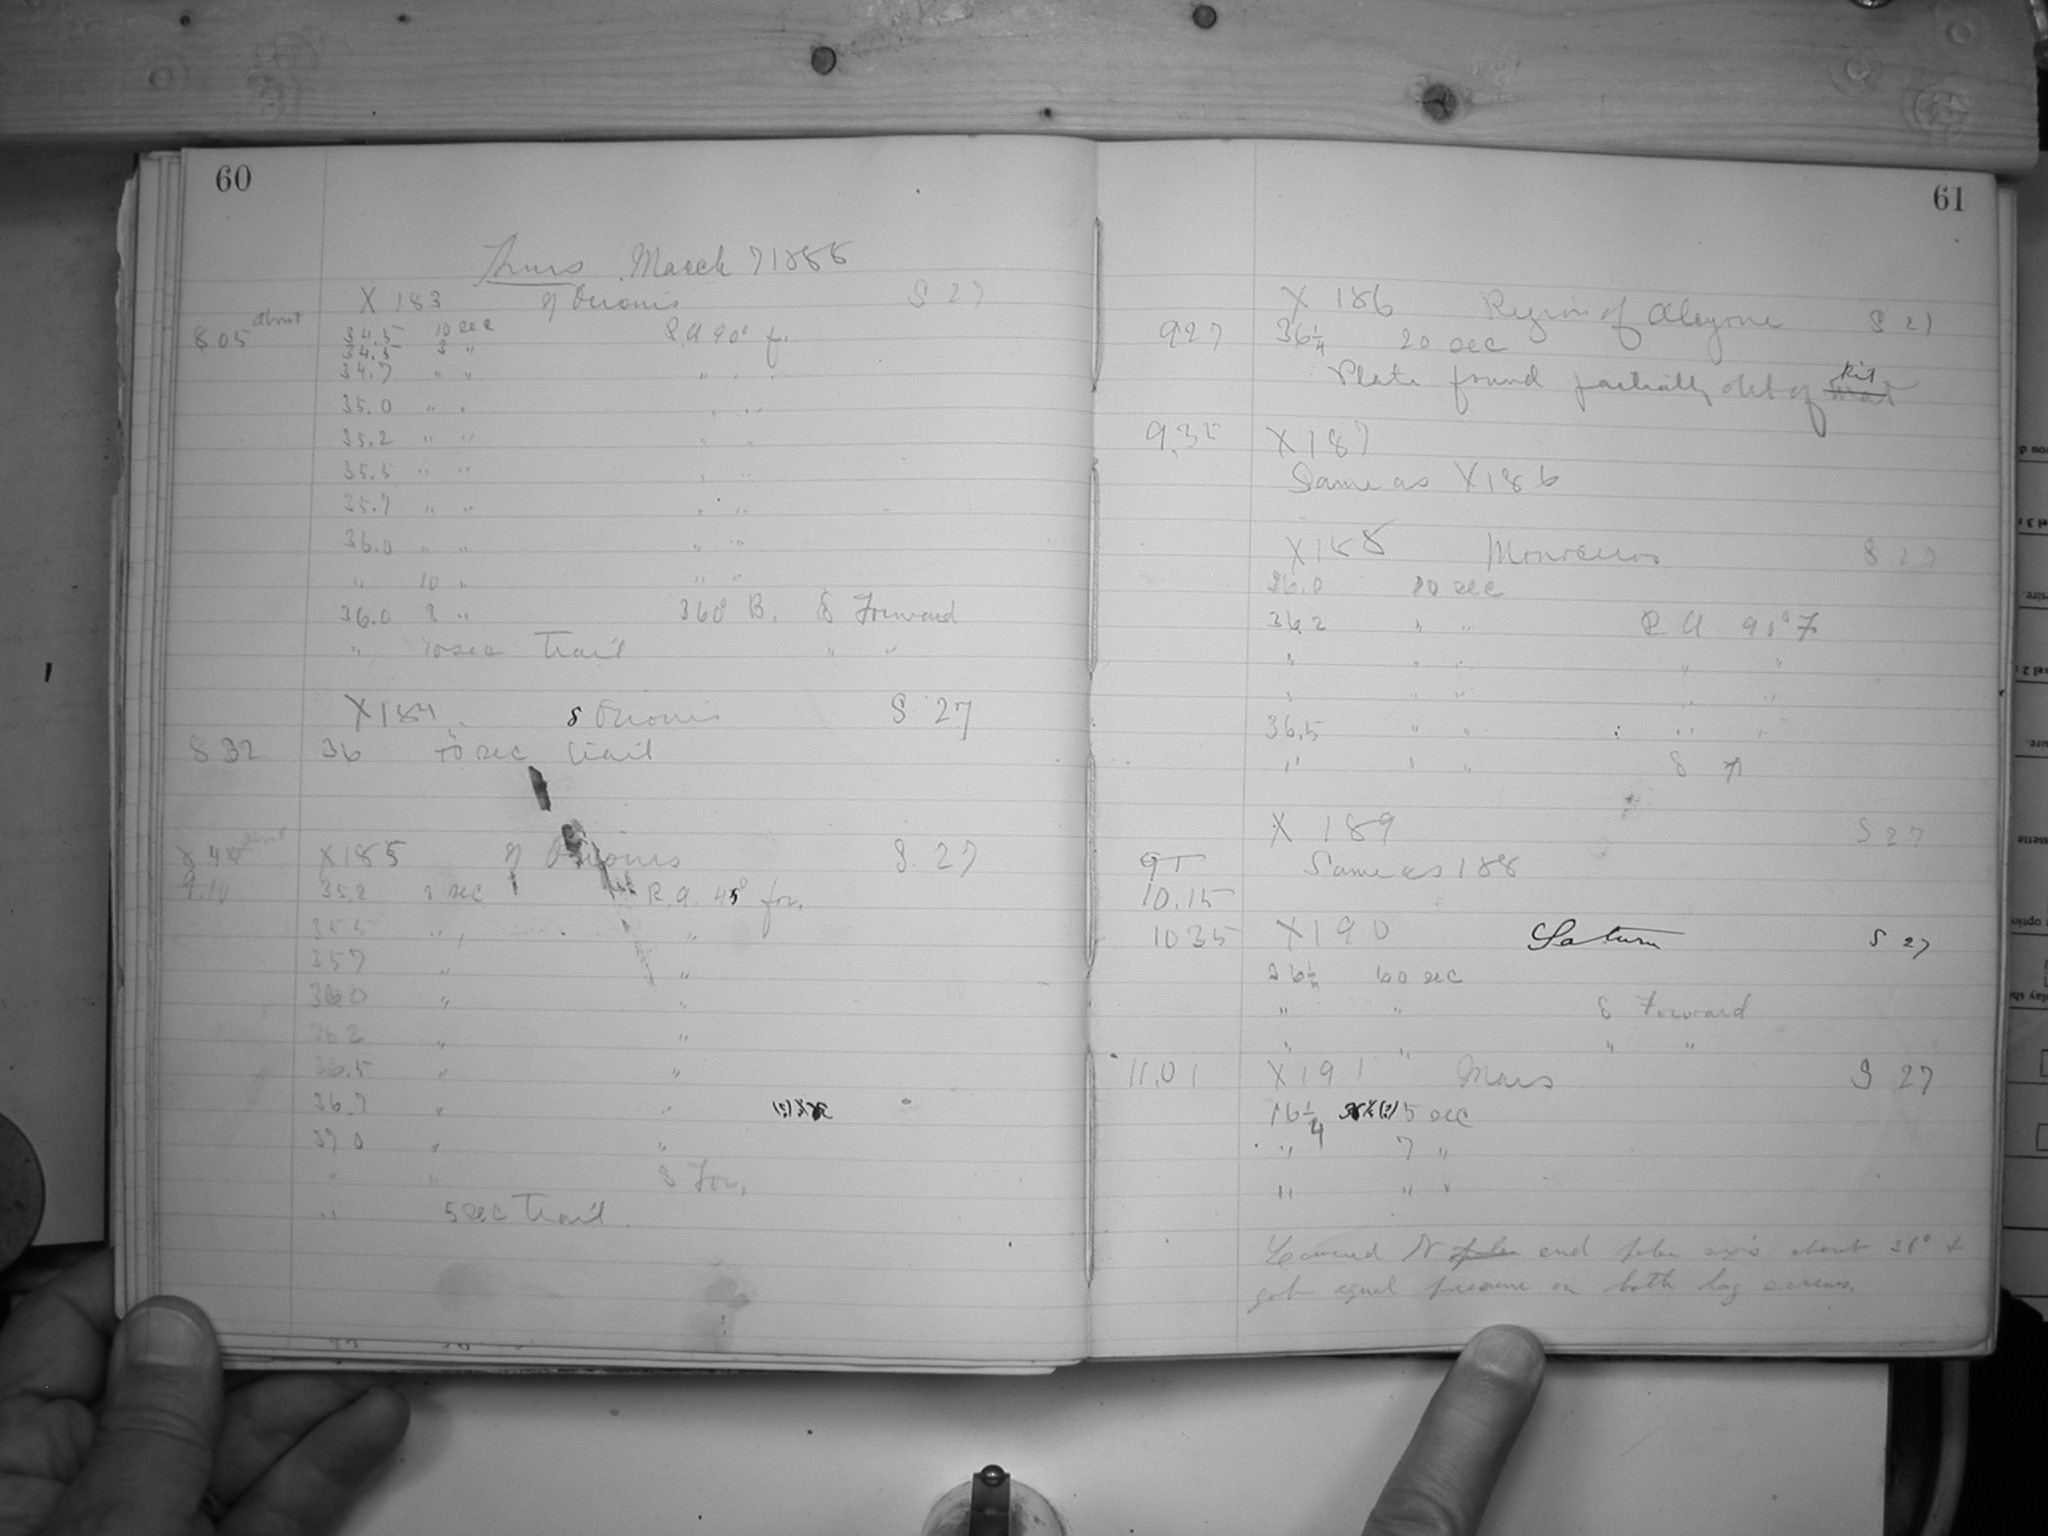 60
Thurs March 7 1888
X 183 Orionis S 27
8 05 about 34.5 10 sec R A 90° f.
34.5 3 "
34.7 " " " "
35.0 " " " "
35.2 " " " "
35.5 " " " "
35.7 " " " "
36.0 " " " "
" 10 " " "
36.0 8 " 360° B. δ Forward
" 10 sec Trail " "
X 184 Orionis S 27
8 32 36 10 sec trail
8 44 about X 185 Orionis S. 27
9.10 35.2 sec R.A. 45° for.
35.5 " "
35 7 " "
36 0 " "
36.2 " "
36.5 " "
36.7 " "
37 0 " "
" " δ For.
" 5 sec Trail.
61
X 186 Region of Alcyone S 27
9 27 36 1/4 20 sec
Plate found partially out of Kit
9.35 X 187
Same as X 186
X 188 Monoceros S 27
36.0 sec
36.2 " " R A 90° F
" " " " "
" " " " "
36.5 " " " "
" " " δ
X 189 S 27
Same as 188
10.15
10 35 X 190 Saturn S 27
60 sec
" " δ Forward
" " " "
11.01 X 191 Mars S 27
36 1/4 (?) 5 sec
" 7 "
" " "
Lowered N end polar axis about &
got equal pressure on both lag screws.